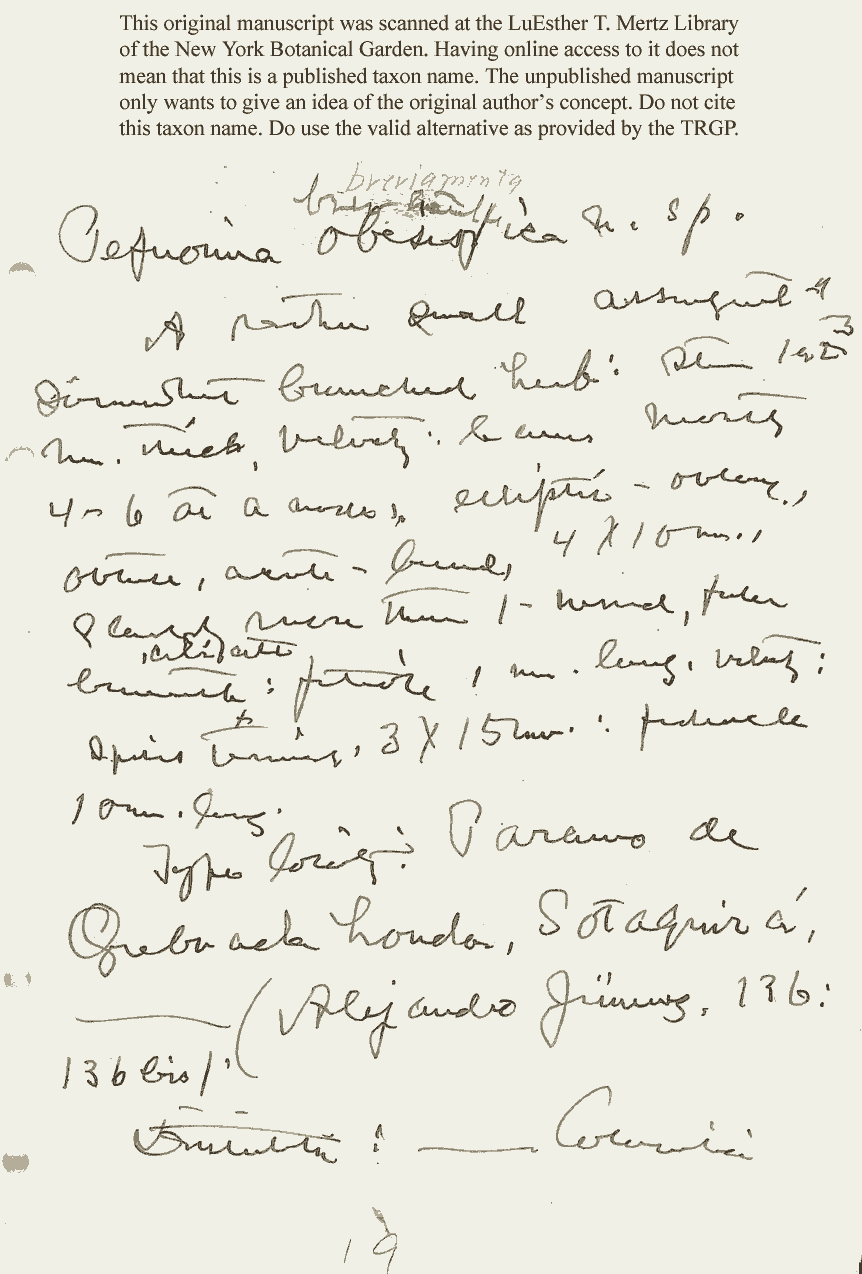 This original manuscript was scanned at the LuEsther T. Mertz Library
of the New York Botanical Garden. Having online access to it does not
mean that this is a published taxon name. The unpublished manuscript
only wants to give an idea of the original author's concept. Do not cite
this taxon name. Do use the valid alternative as provided by the TRGP.
breviamenta
Peperomia n. sp.
A rather small assurgent
somewhat branched herb: stem
mm. thick, velvety: leaves mostly
4-6 at a node, elliptic-oblong,
4 X 10 mm.,
obtuse, acute-based,
scarcely more than 1-nerved,
ciliate
beneath: petiole 1 mm. long, velvety:
spikes terminal, 3 X 15 mm.: peduncle
10 mm. long.
Type locality: Paramo de
Quebrada honda, Sotaquirá,
(Alejandro Jiménez, 136:
136 bis)
Distribution: Colombia
19